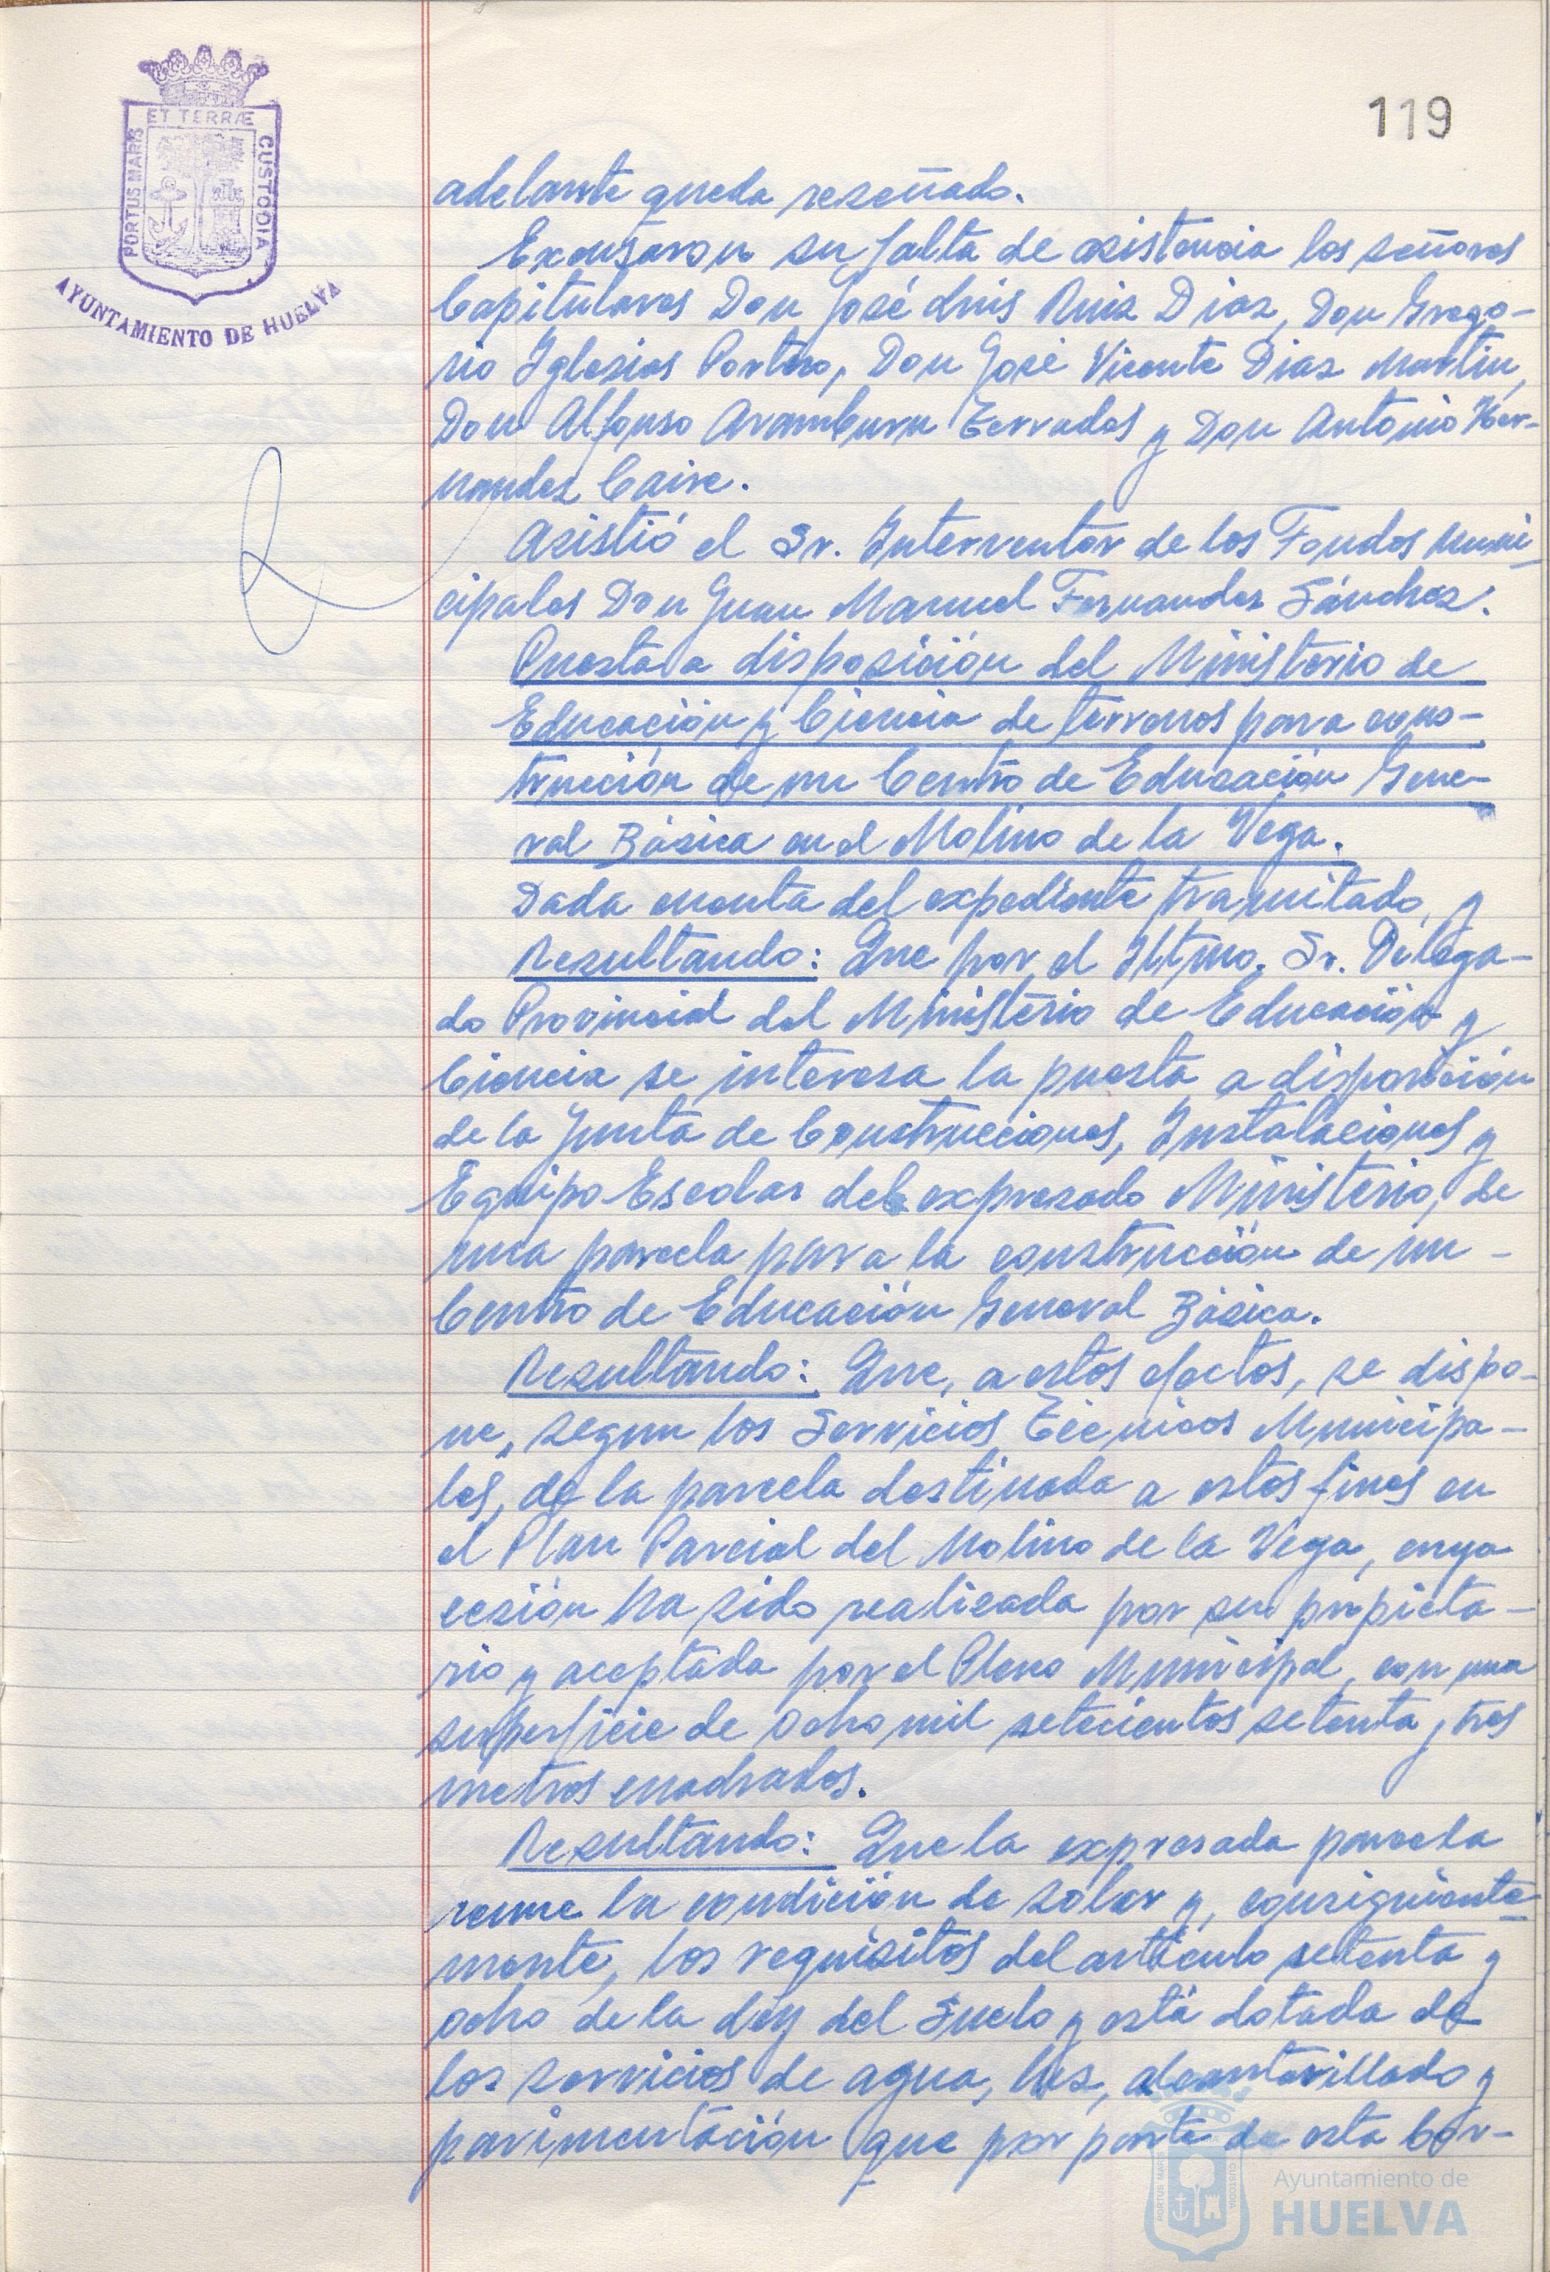 ET TERRÆ
PORTUS MARIS
CUSTODIA
AYUNTAMIENTO DE HUELVA
119
adelante queda reseñado.
Excusaron su falta de asistencia los señores
Capitulares Don José Luis Ruiz Diaz, Don Grego-
rio Iglesias Portero, Don José Vicente Diaz Martin,
Don Alfonso Aramburu Terrades y Don Antonio Her-
nandez Caire.
Asistió el Sr. Interventor de los Fondos Muni-
cipales Don Juan Manuel Fernandez Sánchez.
Puesta a disposición del Ministerio de
Educación y Ciencia de terrenos para cons-
trucción de un Centro de Educación Gene-
ral Básica en el Molino de la Vega.
Dada cuenta del expediente tramitado, y
Resultando: Que por el Iltmo. Sr. Delega-
do Provincial del Ministerio de Educación y
Ciencia se interesa la puesta a disposición
de la Junta de Construcciones, Instalaciones y
Equipo Escolar del expresado Ministerio, de
una parcela para la construcción de un -
Centro de Educación General Básica.
Resultando: Que, a estos efectos, se dispo-
ne, segun los Servicios Técnicos Municipa-
les, de la parcela destinada a estos fines en
el Plan Parcial del Molino de la Vega, cuya
cesión ha sido realizada por su propieta-
rio y aceptada por el Pleno Municipal, con una
superficie de ocho mil setecientos setenta y tres
metros cuadrados.
Resultando: Que la expresada parcela
reune la condición de solar y, consiguiente-
mente, los requisitos del artículo setenta y
ocho de la Ley del Suelo y está dotada de
los servicios de agua, luz, alcantarillado y
pavimentación que por parte de esta Cor-
PORTUS MARIS
CUSTODIA
Ayuntamiento de
HUELVA